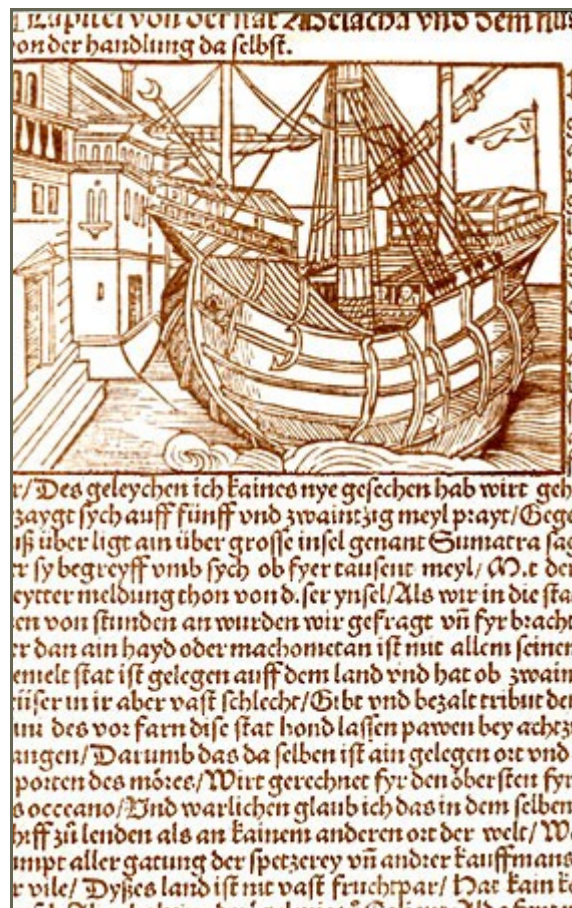 Capitel von der stat Melacha vnd dem flus
von der handlung da selbst.
r/ Des geleychen ich kaines nye gesechen hab wirt geh
zaygt sych auff fünff vnd zwaintzig meyl prayt/ Gege
uß über ligt ain über grosse insel genant Sumatra sag
r sy begreyff vmb sych ob fyer tausent meyl/ M.t der
eytter meldung thon von d.ser ynsel/ Als wir in die sta
en von stunden an wurden wir gefragt vn̄ fyr bracht
er dan ain hayd oder machometan ist mit allem seinen
emelt stat ist gelegen auff dem land vnd hat ob zwain
eüser in ir aber vast schlecht/ Gibt vnd bezalt tribut den
des vor farn dise stat hond lassen pawen bey achtzi
angen/ Darumb das da selben ist ain gelegen ort vnd
porten des möres/ Wirt gerechnet fyr den öbersten fyr
s occeano/ Vnd warlichen glaub ich das in dem selben
hiff zů lenden als an kainem anderen ort der welt/ Wa
umpt aller gatung der spetzerey vn̄ andrer kauffmans
r vile/ Dyßes land ist nit vast fruchtpar/ Hat kain ko